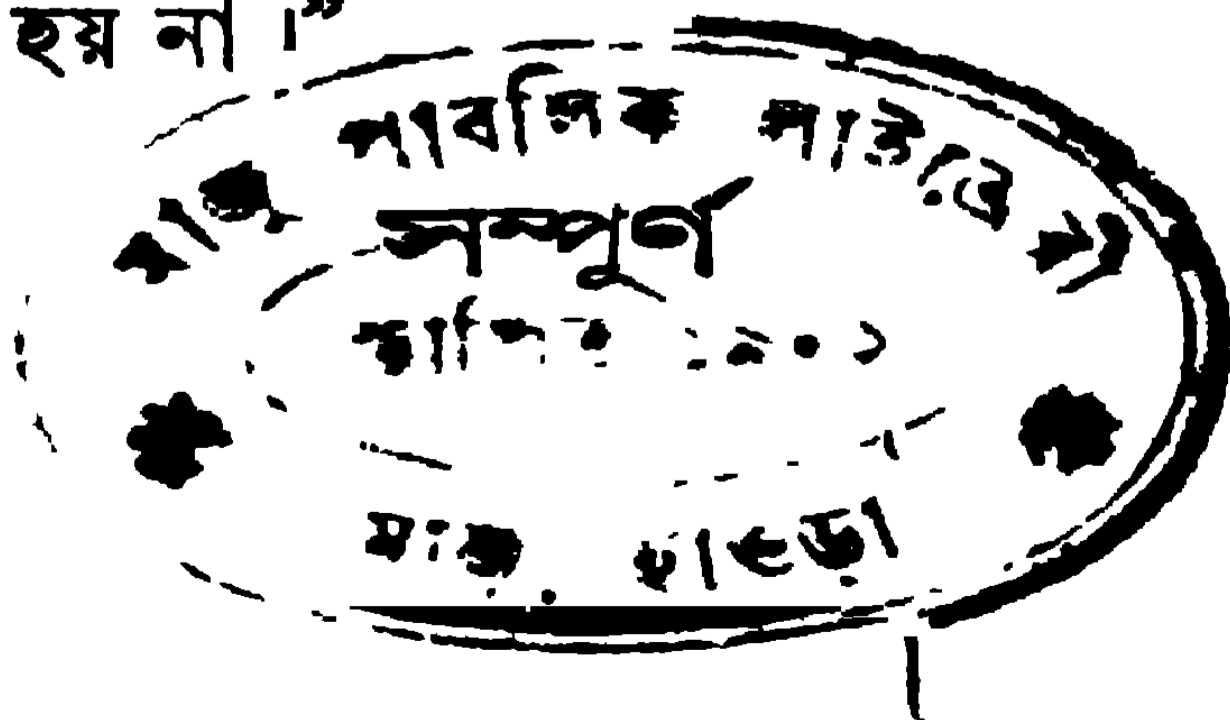 হয় না।”
মাজু পাবলিক লাইব্রেরী
সম্পূর্ণ
স্থাপিত ১৯০১
মাজু, হাওড়া